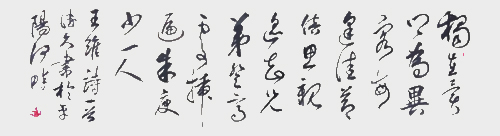 獨在異
鄉為異
客每
逢佳節
倍思親
遙知兄
弟登高
處插
遍朱萸
少一人
王維詩一首
書於
陽河畔